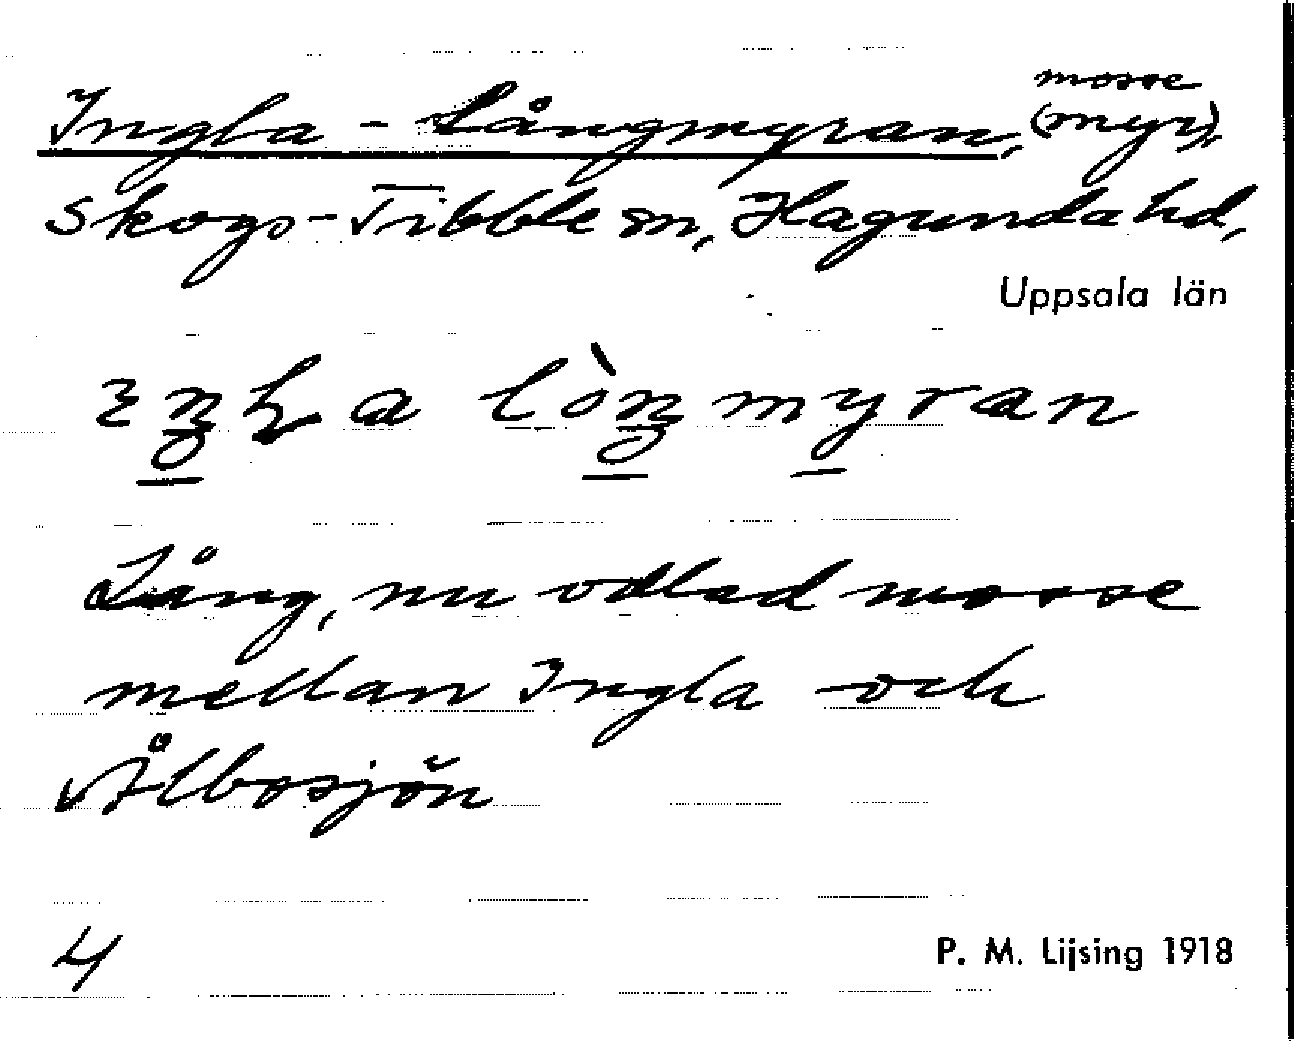 mosse
Ingla - Långmyran, (myr),
Skogs-Tibble sn, Hagunda hd,
Uppsala län
Lång, nu odlad mosse
mellan Ingla och
Ålbosjön
4
P. M. Lijsing 1918